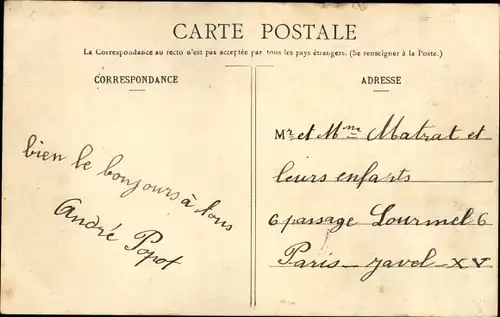 CARTE POSTALE
La Correspondance au recto n'est pas acceptée par tous les pays étrangers. (Se renseigner à la Poste.)
CORRESPONDANCE
bien le bonjours à tous
André Popot
ADRESSE
Mr et Mme Matrat et
leurs enfants
6 passage Lourmel 6
Paris - Javel - XV